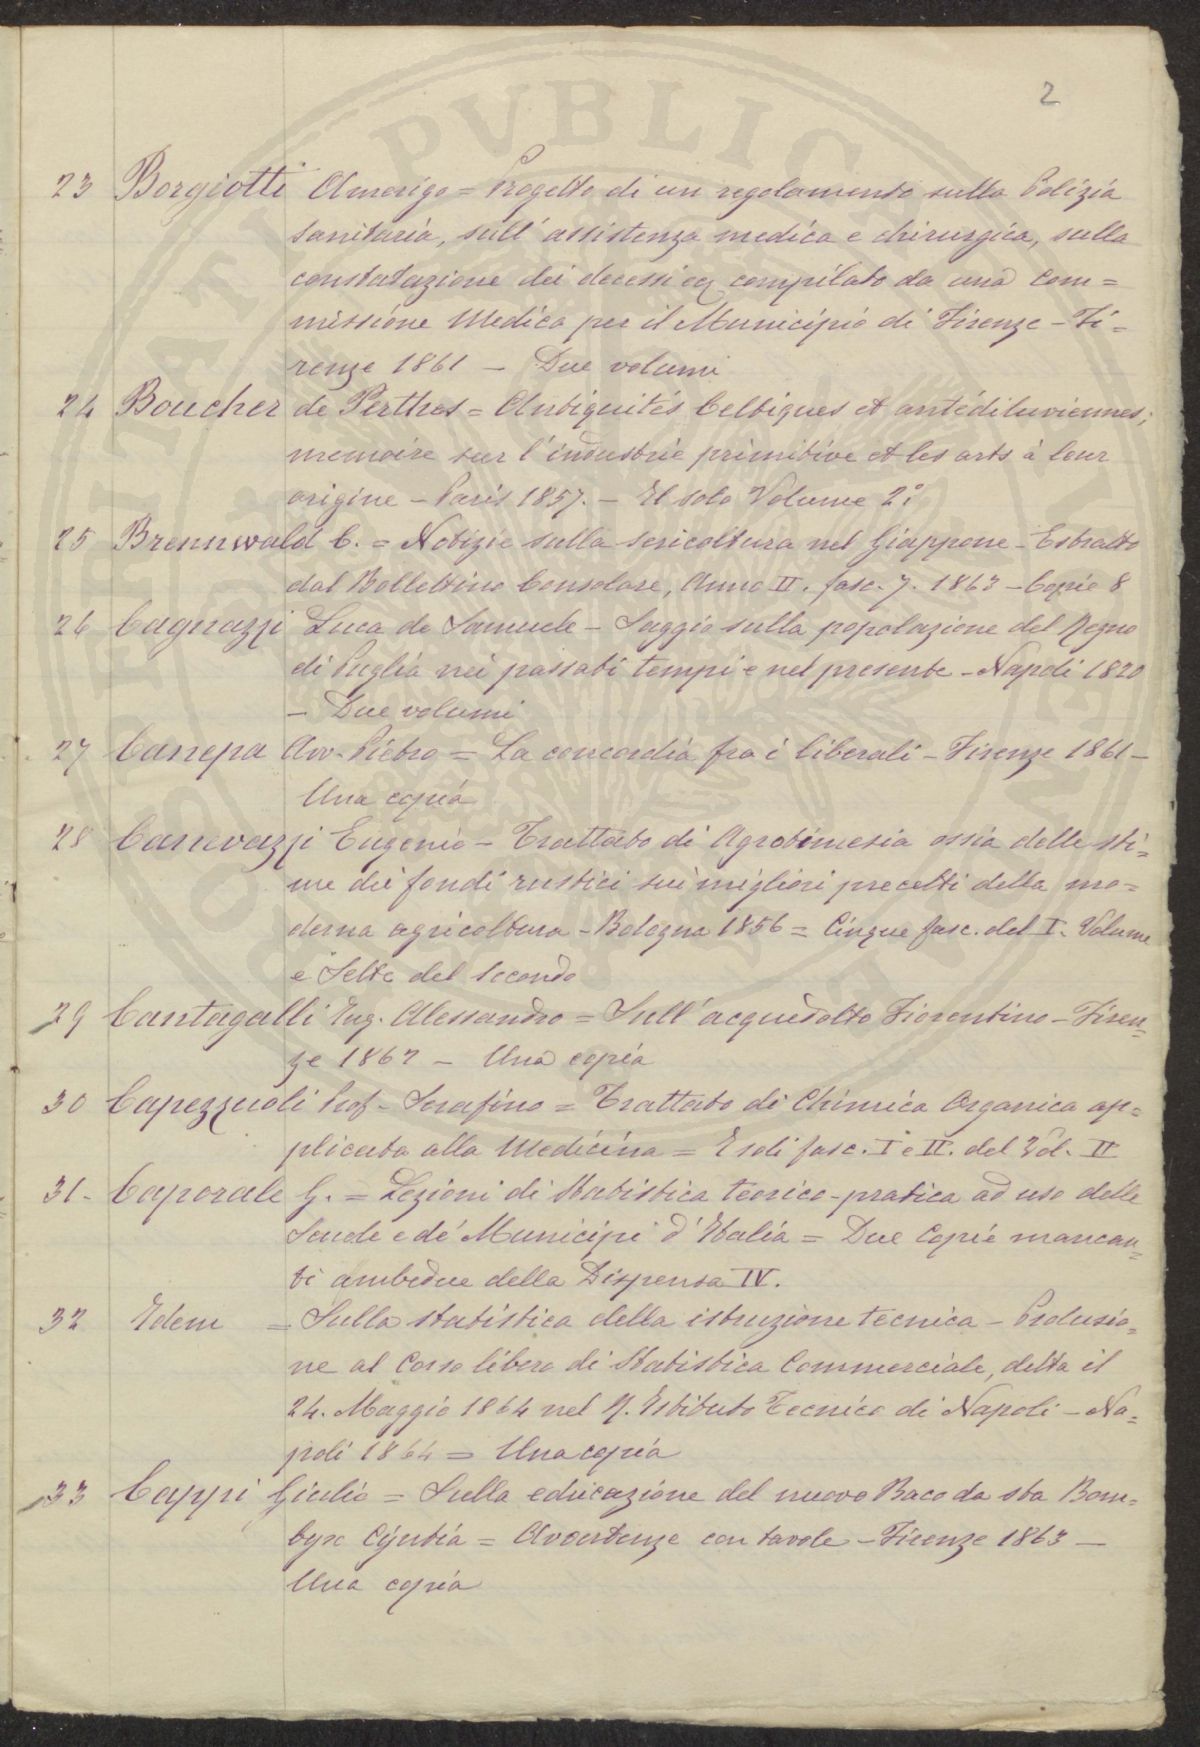 2
23 Borgiotti Amerigo = Progetto di un regolamento sulla Polizia
sanitaria, sull' assistenza medica e chirurgica, sulla
constatazione dei decessi compilato da una Com=
missione Medica per il Municipio di Firenze - Fi=
renze 1861 - Due volumi
24 Boucher de Perthes = Antiquités Celtiques et antédiluviennes;
memoire sur l'industrie primitive et les arts à leur
origine - Paris 1857. - Il solo Volume 2°
25 Brennwald C. = Notizie sulla sericoltura nel Giappone - Estratto
dal Bollettino Consolare, Anno II. fasc. 7. 1863 - Copie 8
26 Cagnazzi Luca de Samuele - Saggio sulla popolazione del Regno
di Puglia nei passati tempi e nel presente - Napoli 1820
- Due volumi
27 Canepa Avv. Pietro = La concordia fra i liberali - Firenze 1861 -
Una copia
28 Canevazzi Eugenio - Trattato di Agrotimesia ossia delle sti=
me dei fondi rustici sui migliori precetti della mo=
derna agricoltura - Bologna 1856 = Cinque fasc. del I. Volume
e Sette del secondo
29 Cantagalli Ing. Alessandro = Sull' acquedotto Fiorentino - Firen=
ze 1867 - Una copia
30 Capezzuoli Prof. Serafino = Trattato di Chimica Organica ap=
plicata alla Medicina = I soli fasc. I e II. del Vol. II
31 - Caporale G. = Lezioni di Statistica teorico-pratica ad uso delle
Scuole e de' Municipi d' Italia = Due Copie mancan=
ti ambedue della Dispensa IV.
32 Idem = Sulla statistica della istruzione tecnica - Prolusio=
ne al Corso libero di Statistica Commerciale, detta il
24. Maggio 1864 nel R. Istituto Tecnico di Napoli - Na=
poli 1864 = Una copia
33 Cappi Giulio = Sulla educazione del nuovo Baco da seta Bom=
byx Cyntia = Avvertenze con tavole - Firenze 1863 -
Una copia